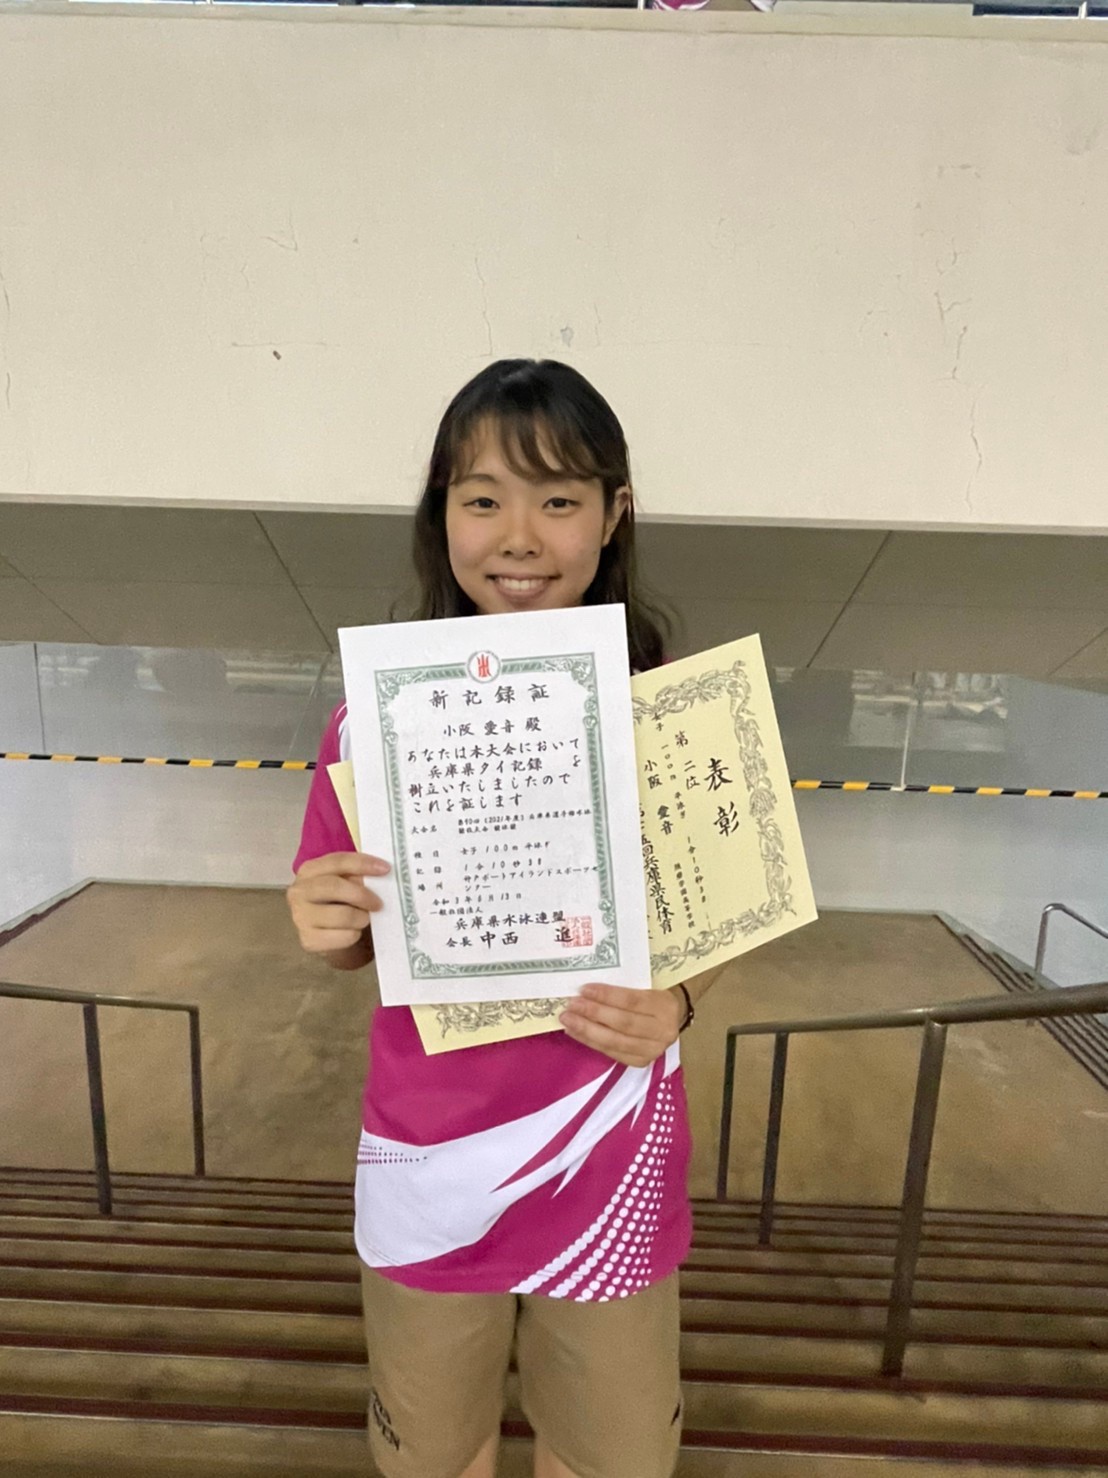 新記録証
小阪 愛音 殿
あなたは本大会において
兵庫県タイ記録 を
樹立いたしましたので
これを証します
大会名 第90回(2021年度)兵庫県選手権水泳
競技大会 競泳競
種目 女子 100m 平泳ぎ
記録 1分10秒38
場所 神戸ポートアイランドスポーツセ
ンター
令和3年6月13日
一般社団法人
兵庫県水泳連盟
会長 中西 進
表彰
第二位
女子 一〇〇m 平泳ぎ 1分10秒38
小阪 愛音
回兵庫県民体育